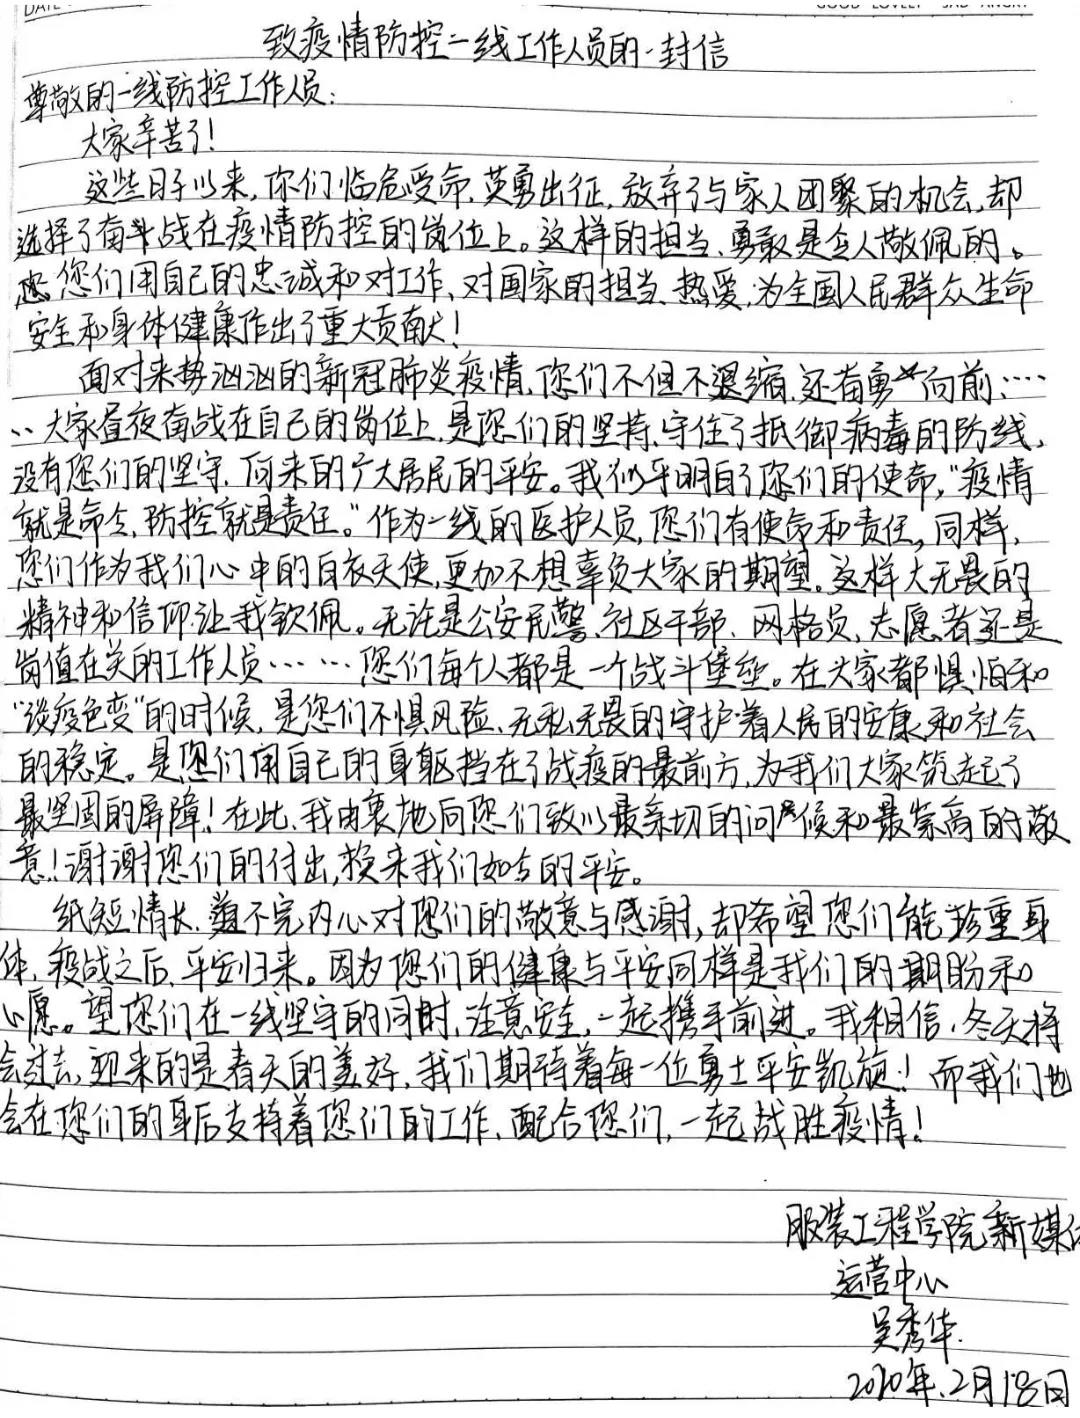 DATE GOOD LOVELY SAD ANGRY
致疫情防控一线工作人员的一封信
尊敬的一线防控工作人员:
大家辛苦了!
这些日子以来,你们临危受命,英勇出征,放弃了与家人团聚的机会,却
选择了奋斗战在疫情防控的岗位上。这样的担当、勇敢是令人敬佩的。
您们用自己的忠诚和对工作、对国家的担当、热爱,为全国人民群众生命
安全和身体健康作出了重大贡献!
面对来势汹汹的新冠肺炎疫情,您们不但不退缩,还奋勇向前……
大家昼夜奋战在自己的岗位上,是您们的坚持,守住了抵御病毒的防线,
没有您们的坚守,何来的广大居民的平安。我似乎明白了您们的使命,“疫情
就是命令,防控就是责任。”作为一线的医护人员,您们有使命和责任,同样,
您们作为我们心中的白衣天使,更加不想辜负大家的期望。这样大无畏的
精神和信仰让我钦佩。无论是公安民警、社区干部、网格员、志愿者还是
岗值在关的工作人员……您们每个人都是一个战斗堡垒。在大家都惧怕和
“谈疫色变”的时候,是您们不惧风险、无私无畏的守护着人民的安康和社会
的稳定。是您们用自己的身躯挡在了战疫的最前方,为我们大家筑起了
最坚固的屏障!在此,我由衷地向您们致以最亲切的问候和最崇高的敬
意!谢谢您们的付出,换来我们如今的平安。
纸短情长,道不完内心对您们的敬意与感谢,却希望您们能珍重身
体,疫战之后,平安归来。因为您们的健康与平安同样是我们的期盼和
心愿。望您们在一线坚守的同时,注意安全,一起携手前进。我相信,冬天将
会过去,迎来的是春天的美好,我们期待着每一位勇士平安凯旋!而我们也
会在您们的身后支持着您们的工作、配合您们,一起战胜疫情!
服装工程学院新媒体
运营中心
吴秀华.
2020年.2月18日